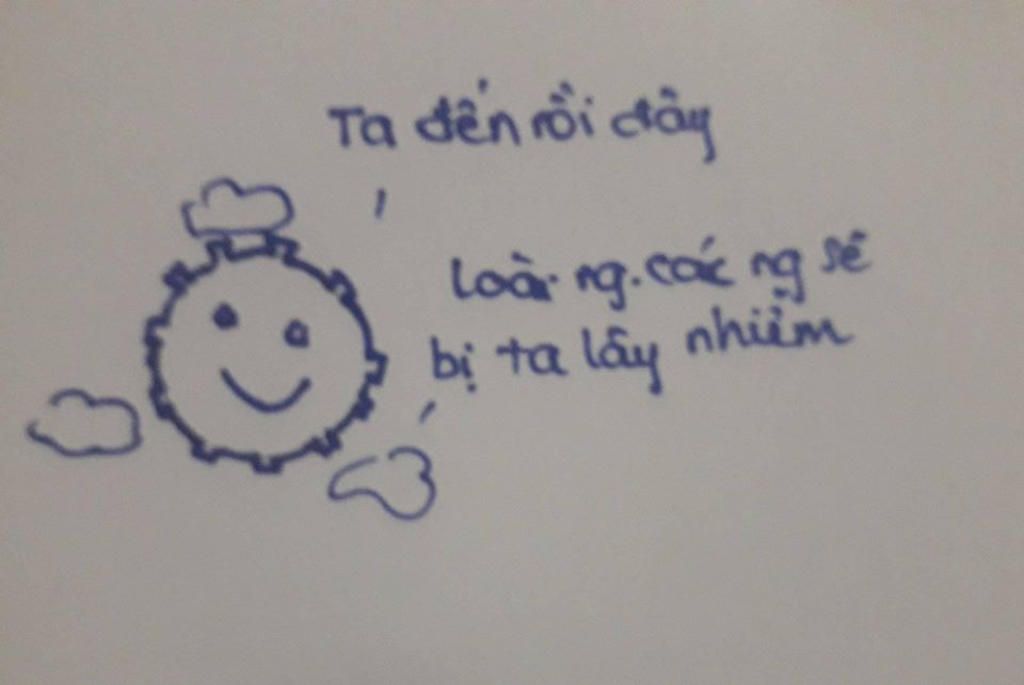 Ta đến rồi đây
Loài ng. các ng sẽ
bị ta lây nhiễm